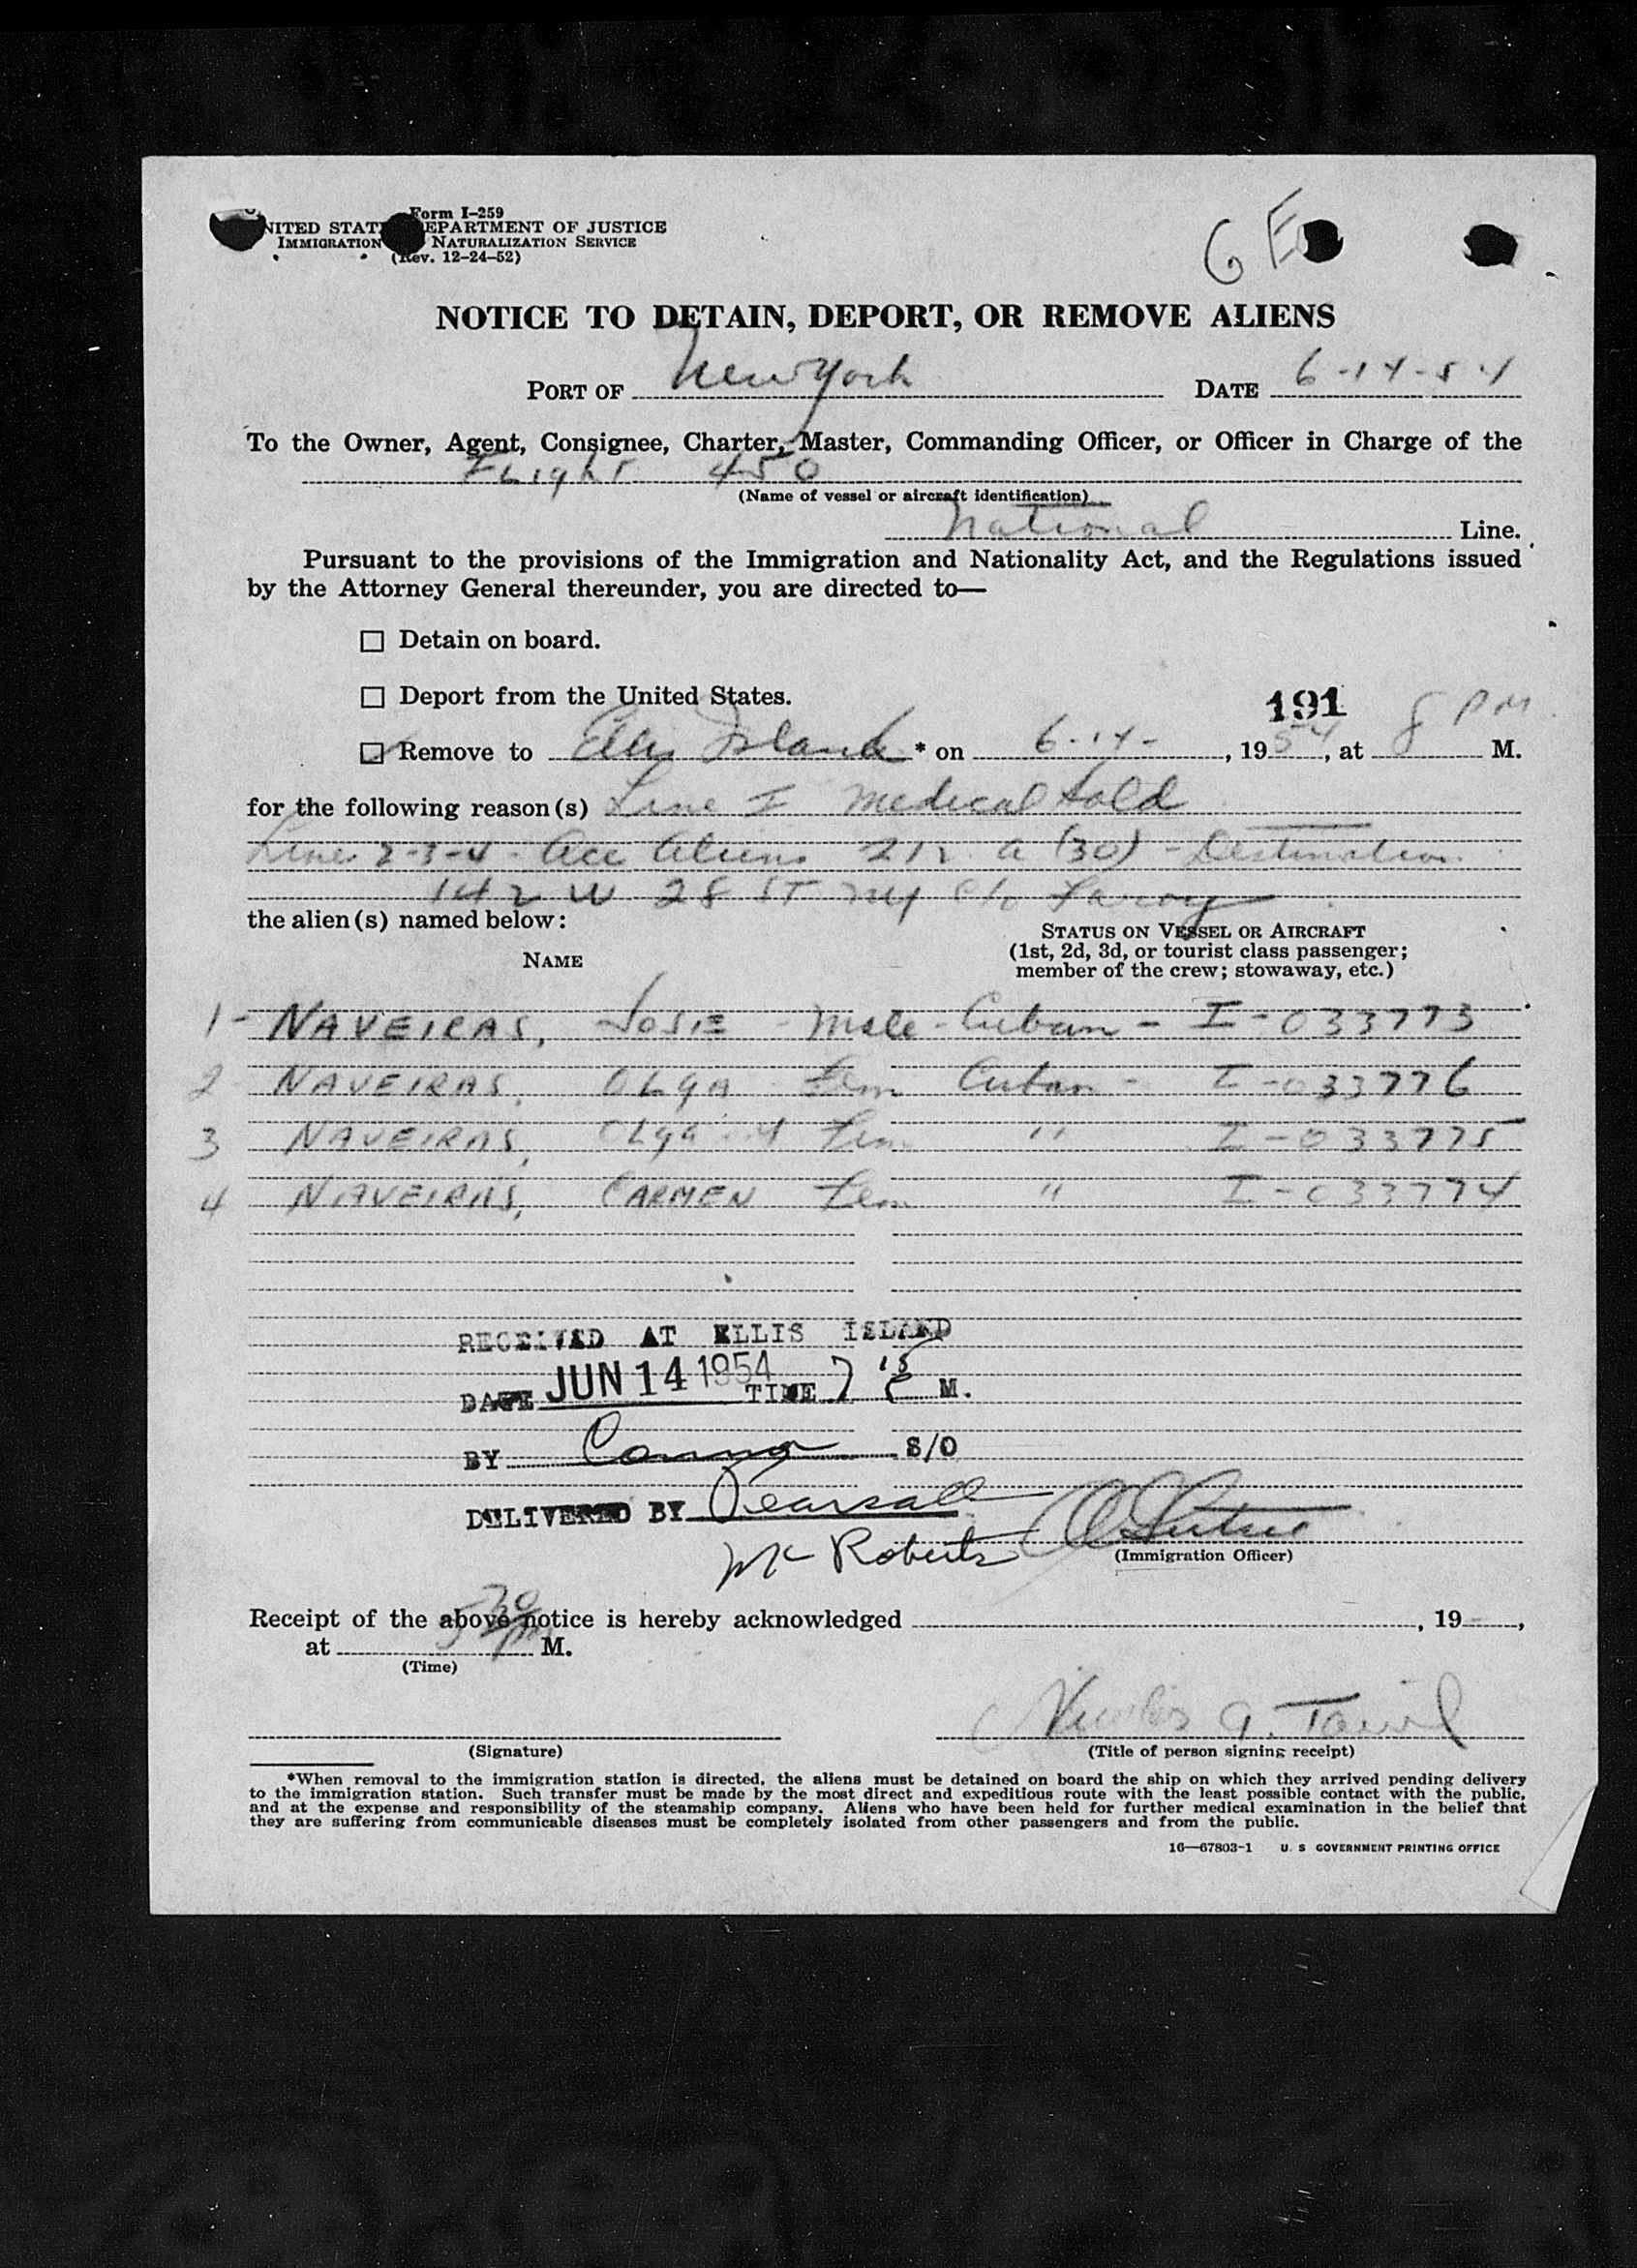 Form I-259
NITED STAT EPARTMENT OF JUSTICE
IMMIGRATION NATURALIZATION SERVICE
(Rev. 12-24-52)
6 E
NOTICE TO DETAIN, DEPORT, OR REMOVE ALIENS
PORT OF New York DATE 6-14-54
To the Owner, Agent, Consignee, Charter, Master, Commanding Officer, or Officer in Charge of the
FLight 450
(Name of vessel or aircraft identification)
National Line.
Pursuant to the provisions of the Immigration and Nationality Act, and the Regulations issued
by the Attorney General thereunder, you are directed to—
Detain on board.
Deport from the United States.
191
Remove to Ellis Island * on 6-14-, 1954, at 8 PM M.
for the following reason(s) Line I Medical Hold
Line 2-3-4- Acc Aliens 212. a (30) - Destination
142 W 28 ST NY c/o
the alien(s) named below:
NAME
STATUS ON VESSEL OR AIRCRAFT
(1st, 2d, 3d, or tourist class passenger;
member of the crew; stowaway, etc.)
1- NAVEIRAS, JOSIE - Male - Cuban - I-033773
2 NAVEIRAS, OLGA Fem Cuban - I-033776
3 NAVEIRAS, OLGA M Fem " I-033775
4 NAVEIRAS, CARMEN Fem " I-033774
RECEIVED AT ELLIS ISLAND
DATE JUN 14 1954 TIME 7 15 P M.
BY Connor S/O
DELIVERED BY Pearsall
McRoberts
(Immigration Officer)
Receipt of the above notice is hereby acknowledged , 19 ,
at 5 30 PM M.
(Time)
(Signature)
(Title of person signing receipt)
*When removal to the immigration station is directed, the aliens must be detained on board the ship on which they arrived pending delivery
to the immigration station. Such transfer must be made by the most direct and expeditious route with the least possible contact with the public,
and at the expense and responsibility of the steamship company. Aliens who have been held for further medical examination in the belief that
they are suffering from communicable diseases must be completely isolated from other passengers and from the public.
16—67803-1 U. S GOVERNMENT PRINTING OFFICE